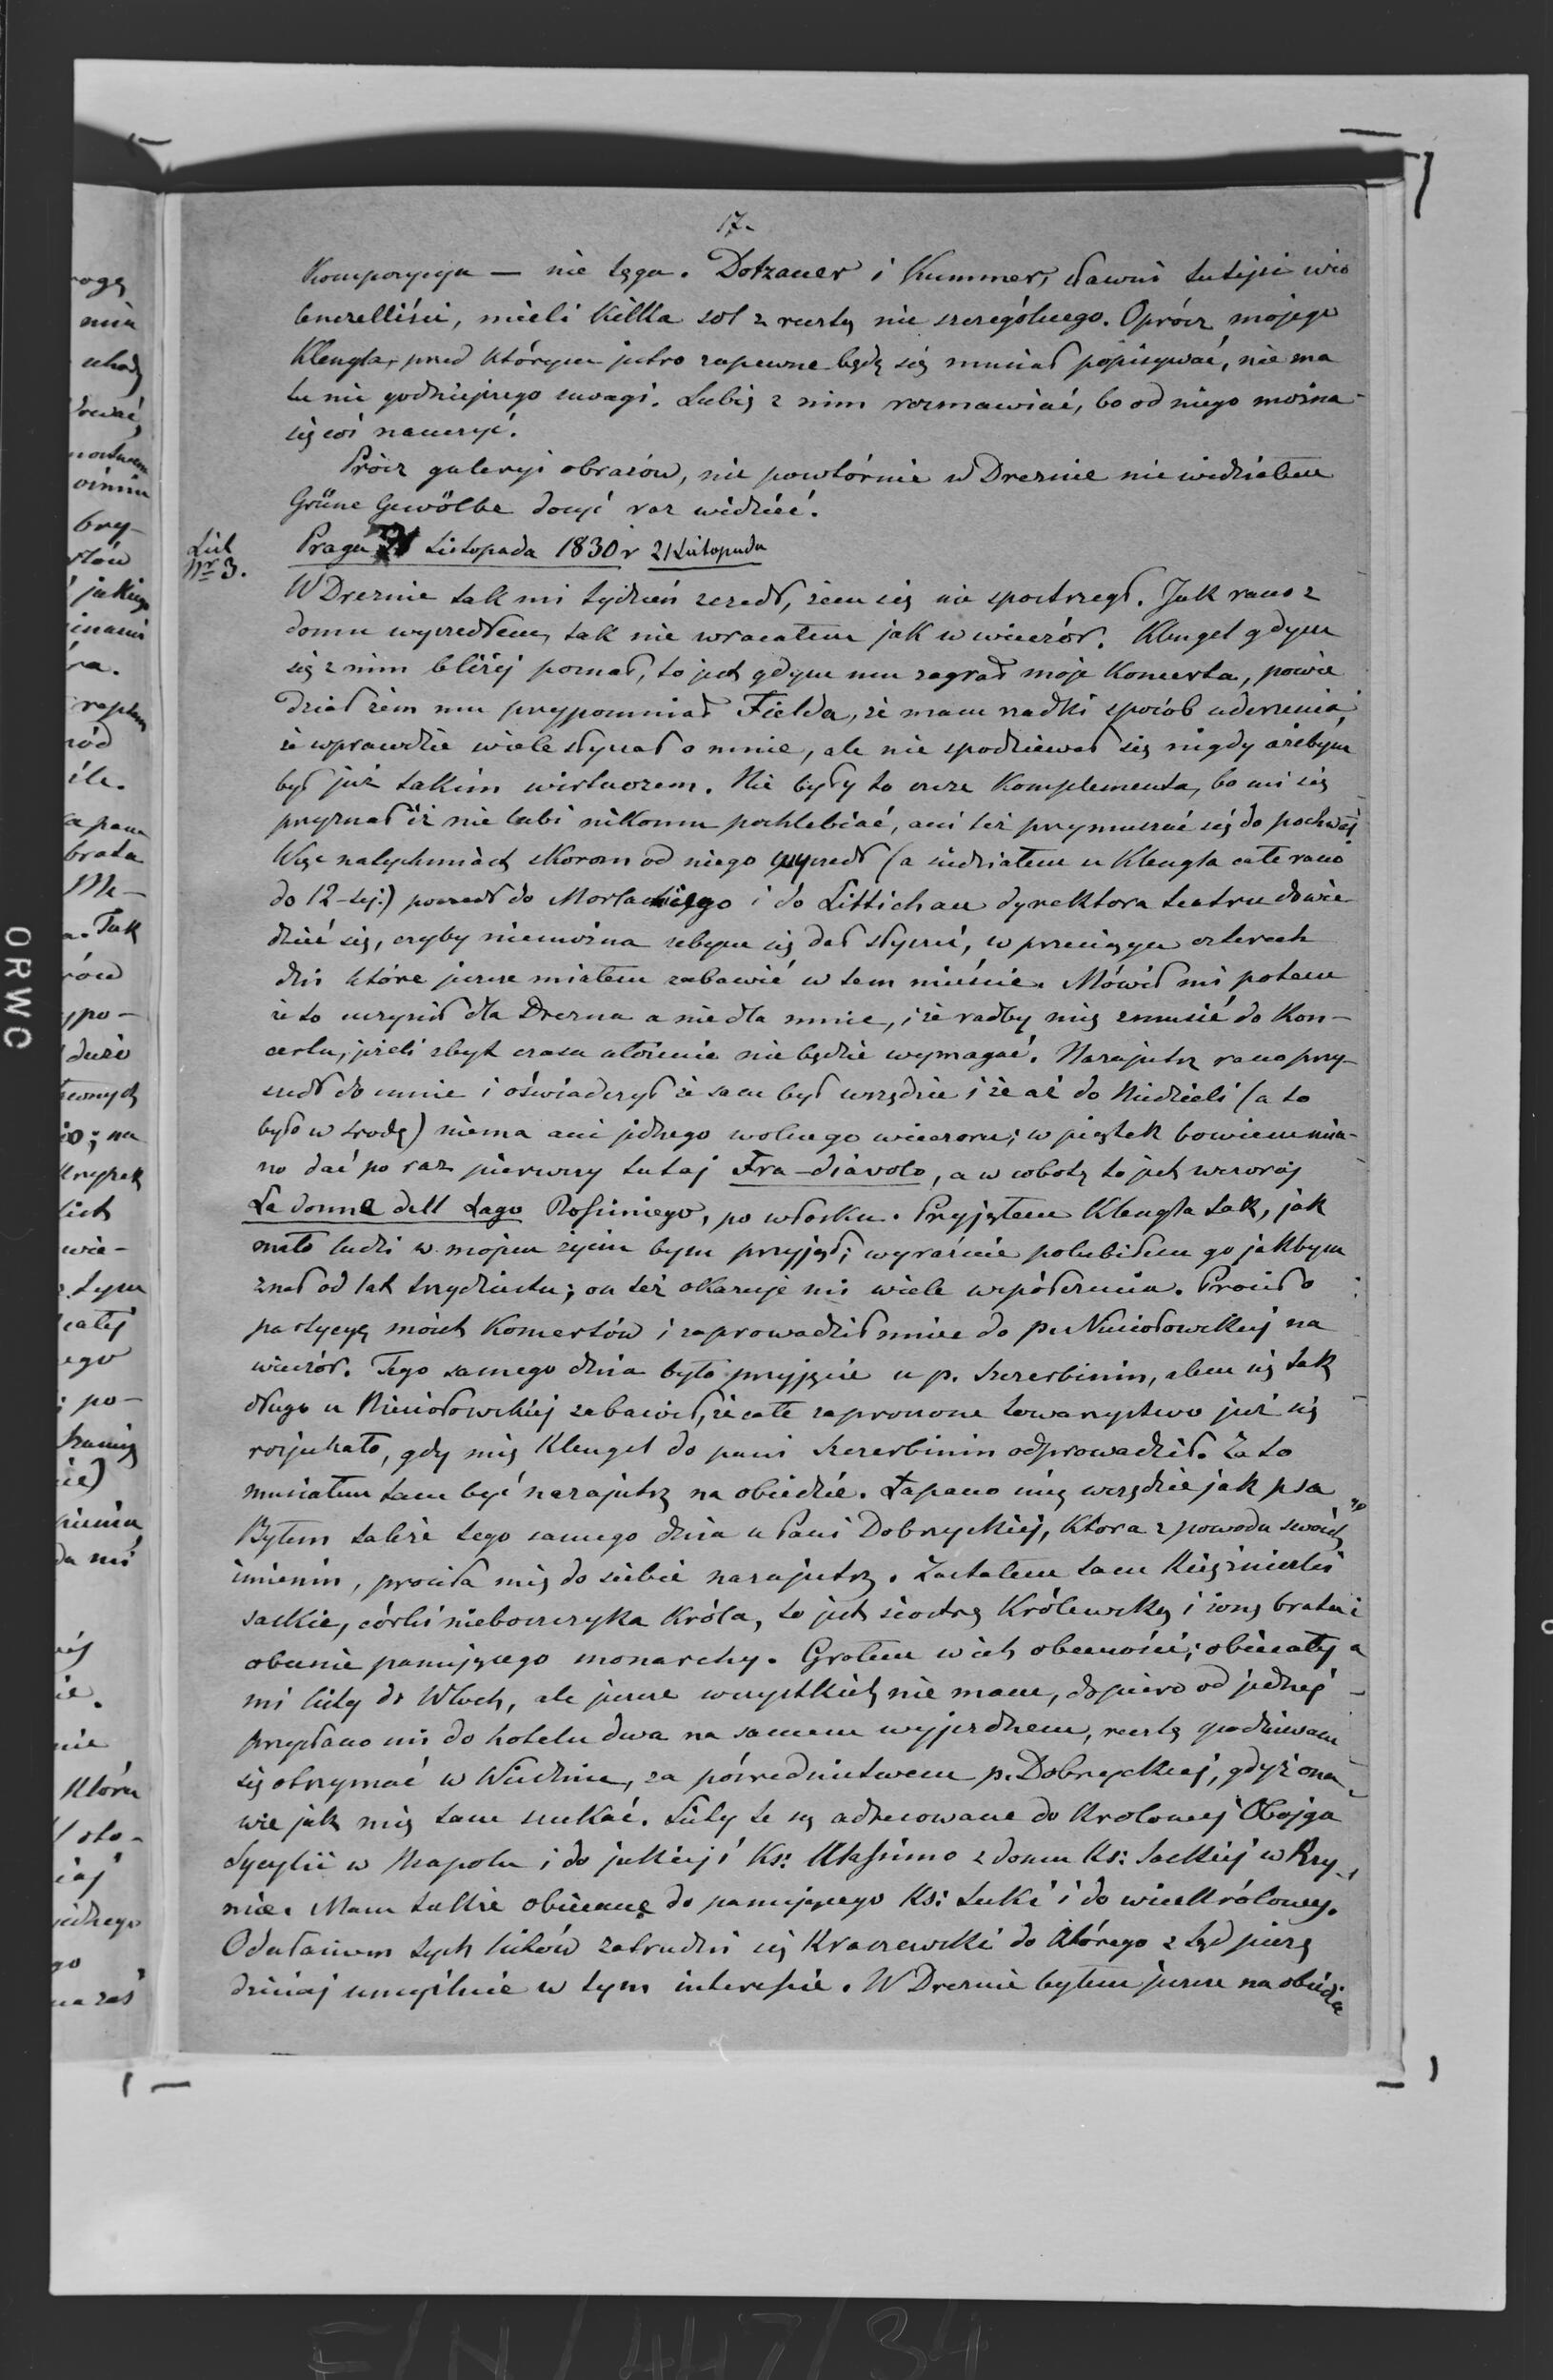 17.
Kompozycya — nie tęga. Dotzauer i Kummer, sławni tutejsi wio
lenczelliści, mieli kilka sol z resztą nic szczególnego. Oprócz mojego
Klengla, przed którym jutro zapewne będę się musiał popisywać, nie ma
tu nic godniejszego uwagi. Lubię z nim rozmawiać, bo od niego można
się coś nauczyć.
Prócz galeryi obrazów, nic powtórnie w Dreznie nie widziałem
Grüne Gewölbe dosyć raz widzieć.
List
Nr 3.
Praga 21 Listopada 1830 r 21 Listopada
W Dreznie tak mi tydzień zszedł, żem się nie spostrzegł. Jak rano z
domu wyszedłem, tak nie wracałem jak w wieczór. Klengel gdym
się z nim bliżej poznał, to jest gdym mu zagrał moje Koncerta, powie
dział żem mu przypomniał Fielda, że mam rzadki sposób uderzenia,
że wprawdzie wiele słyszał o mnie, ale nie spodziewał się nigdy ażebym
był już takim wirtuozem. Nie były to czcze Komplementa, bo mi się
przyznał iż nie lubi nikomu pochlebiać, ani też przymuszać się do pochwał
Więc natychmiast skorom od niego wyszedł (a siedziałem u Klengla całe rano
do 12-tej.) poszedł do Morlackiego i do Littichau dyrektora teatru dowie
dzieć się, czyby niemożna żebym się dał słyszeć, w przeciągu czterech
dni które jeszcze miałem zabawić w tem mieście. Mówił mi potem
że to uczynił dla Drezna a nie dla mnie, i że radby mię zmusić do Kon-
certu, jeżeli zbyt czasu ułożenie nie będzie wymagać. Nazajutrz rano przy-
szedł do mnie i oświadczył że sam był wszędzie i że aż do Niedzieli (a to
było w środę) niema ani jednego wolnego wieczoru; w piątek bowiem mia-
no dać po raz pierwszy tutaj Fra-diavolo, a w sobotę to jest wczoraj
La donna dell Lago Rossiniego, po włosku. Przyjąłem Klengla tak, jak
mało ludzi w mojem życiu bym przyjął; wyraźnie polubiłem go jakbym
znał od lat trzydziestu; on też okazuje mi wiele współczucia. Prosił o
partycyę moich Koncertów i zaprowadził mnie do p. Niesiołowskiej na
wieczór. Tego samego dnia było przyjęcie u p. Szczerbinin, alem się tak
długo u Niesiołowskiej zabawił, że całe zaproszone towarzystwo już się
rozjechało, gdy mię Klengel do pani Szczerbinin odprowadził. Za to
musiałem tam być nazajutrz na obiedzie. Łapano mię wszędzie jak psa
Byłem także tego samego dnia u Pani Dobrzyckiej, która z powodu swoich
imienin, prosiła mię do siebie nazajutrz. Zastałem tam Księżniczki
saskie, córki nieboszczyka Króla, to jest siostrę Królewską i żonę brata
obecnie panującego monarchy. Grałem w ich obecności; obiecały
mi listy do Włoch, ale jeszcze wszystkich nie mam, dopiero od jednej
przysłano mi do hotelu dwa na samem wyjezdnem, resztę spodziewam
się otrzymać w Wiedniu, za pośrednictwem p. Dobrzyckiej, gdyż ona
wie jak mię tam szukać. Listy te są adresowane do Krolowej Obojga
Sycylii w Neapolu i do jakiejś Ks: Ulassimo z domu Ks: Saskiej w Rzy-
mie. Mam także obiecane do panującego Ks: Luki i do wicekrólowej.
Odesłaniem tych listów zatrudni się Kraszewski do którego z tąd piszę
dzisiaj umyślnie w tym interesie. W Dreznie byłem jeszcze na obiedzie